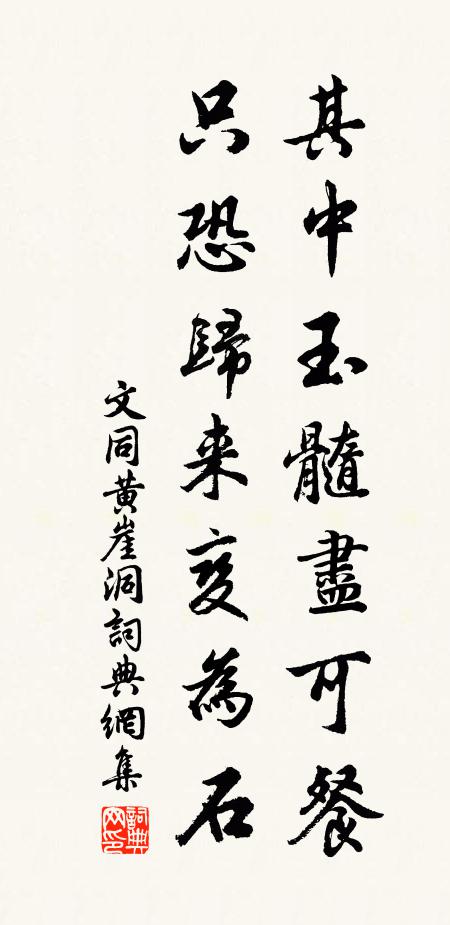 其中玉髓盡可餐
只恐歸来变為石
文同黄崖洞詞典網集
詞典網印